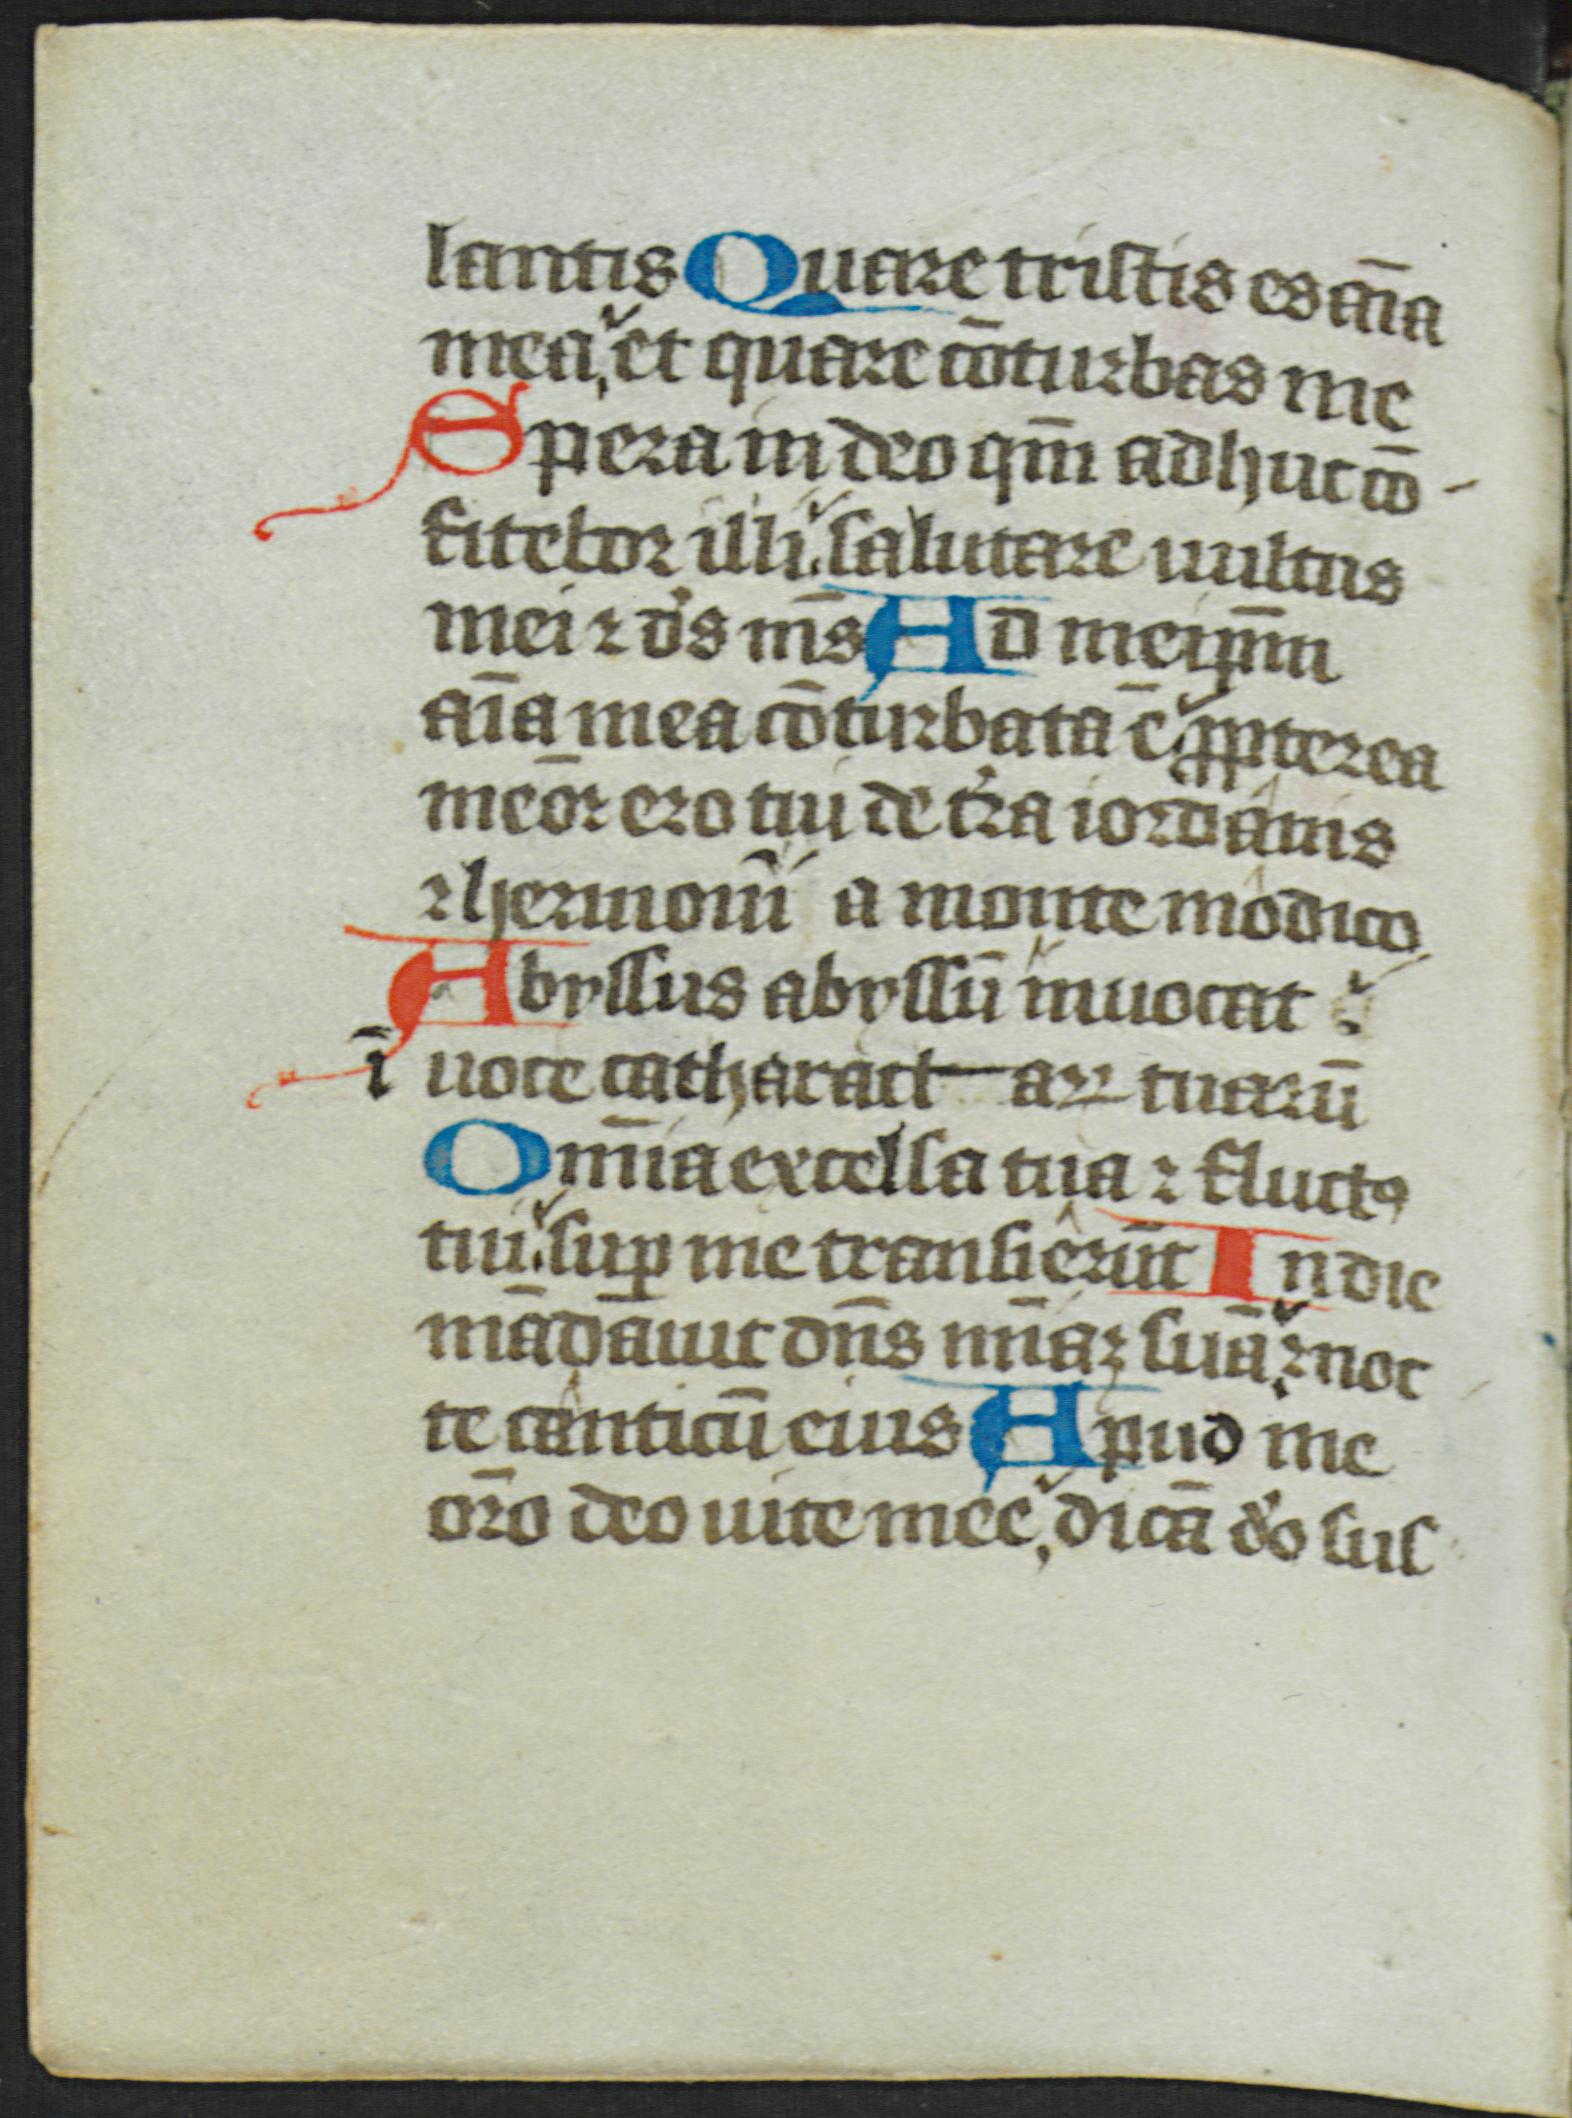 lantis Quare tristis es aīa
mea, et quare cōturbas me
Spera in deo qm̄ adhuc cō-
fitebor illi. salutare uultus
mei ⁊ ds̄ ms̄ Ad meip̄m
aīa mea cōturbata ē. ꝓpterea
meōr ero tui de tr̄a iordanis
⁊ hermonīi a monte modico
Abyssus abyssū inuocat.
ī uoce catharact ar tuarū
Om̄ia excelsa tua ⁊ fluctꝰ
tui. suꝑ me transierūt In die
mādauit dn̄s mīaꝫ suā. ⁊ noc
te canticū eius Apud me
or̄o deo uite mee, dicā do suſ